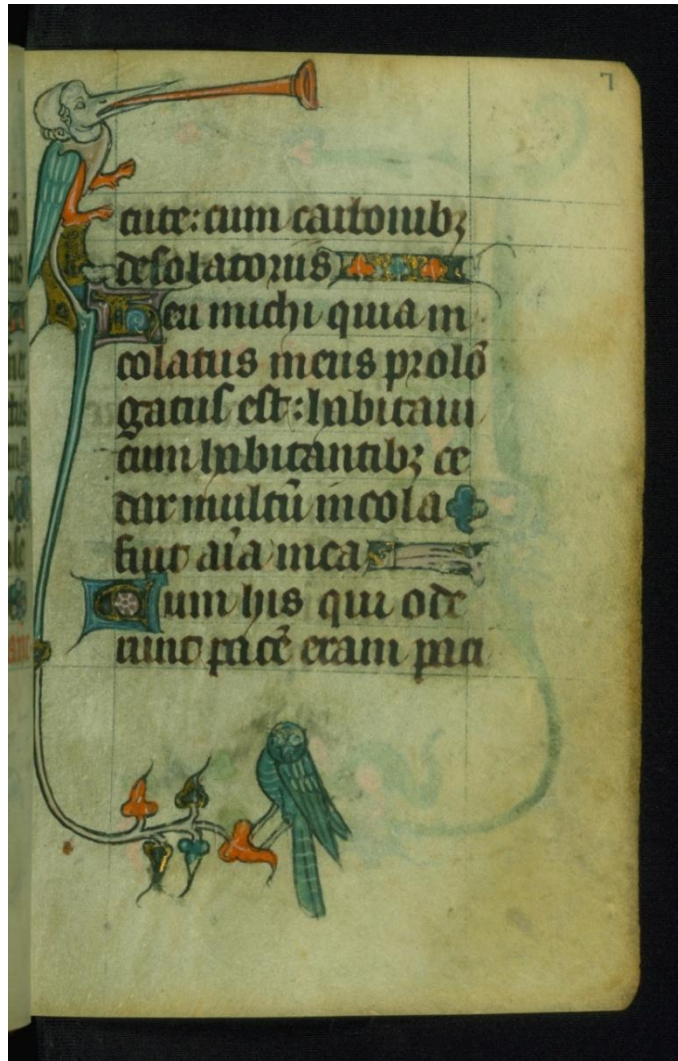 7
cute: cum carbonibꝫ
desolatorus
Heu michi quia in
colatus meus prolō
gatus est: habitaui
cum habitantibꝫ ce
dar multū incola
fuit aīa mea
Cum his qui ode
runt pacē eram paci